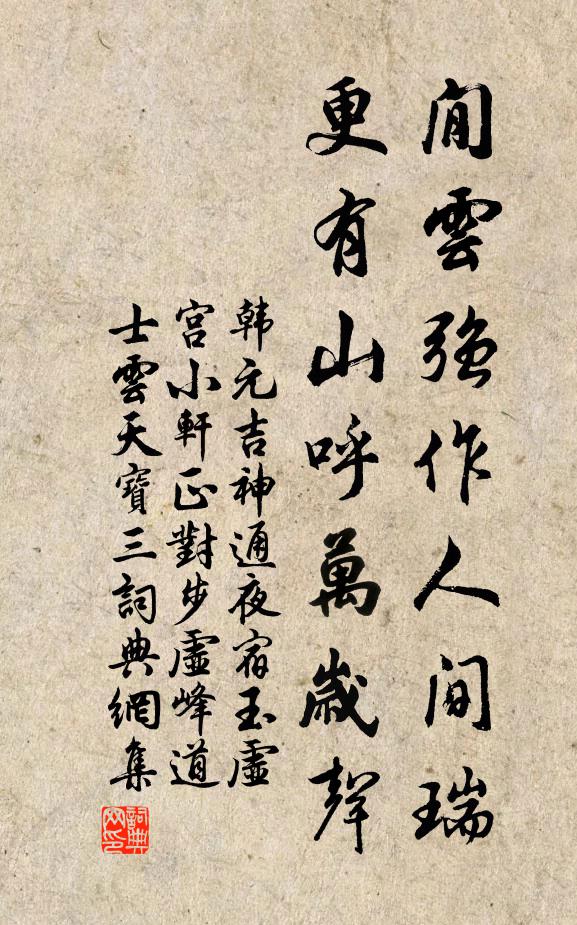 閒雲強作人間瑞
更有山呼萬歲聲
韩元吉神通夜宿玉虛
宮小軒正對步虛峰道
士雲天寶三詞典網集
詞典网印